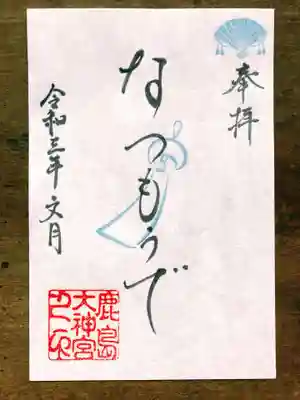 奉拝
なつもうで
令和三年文月
鹿島
大神宮